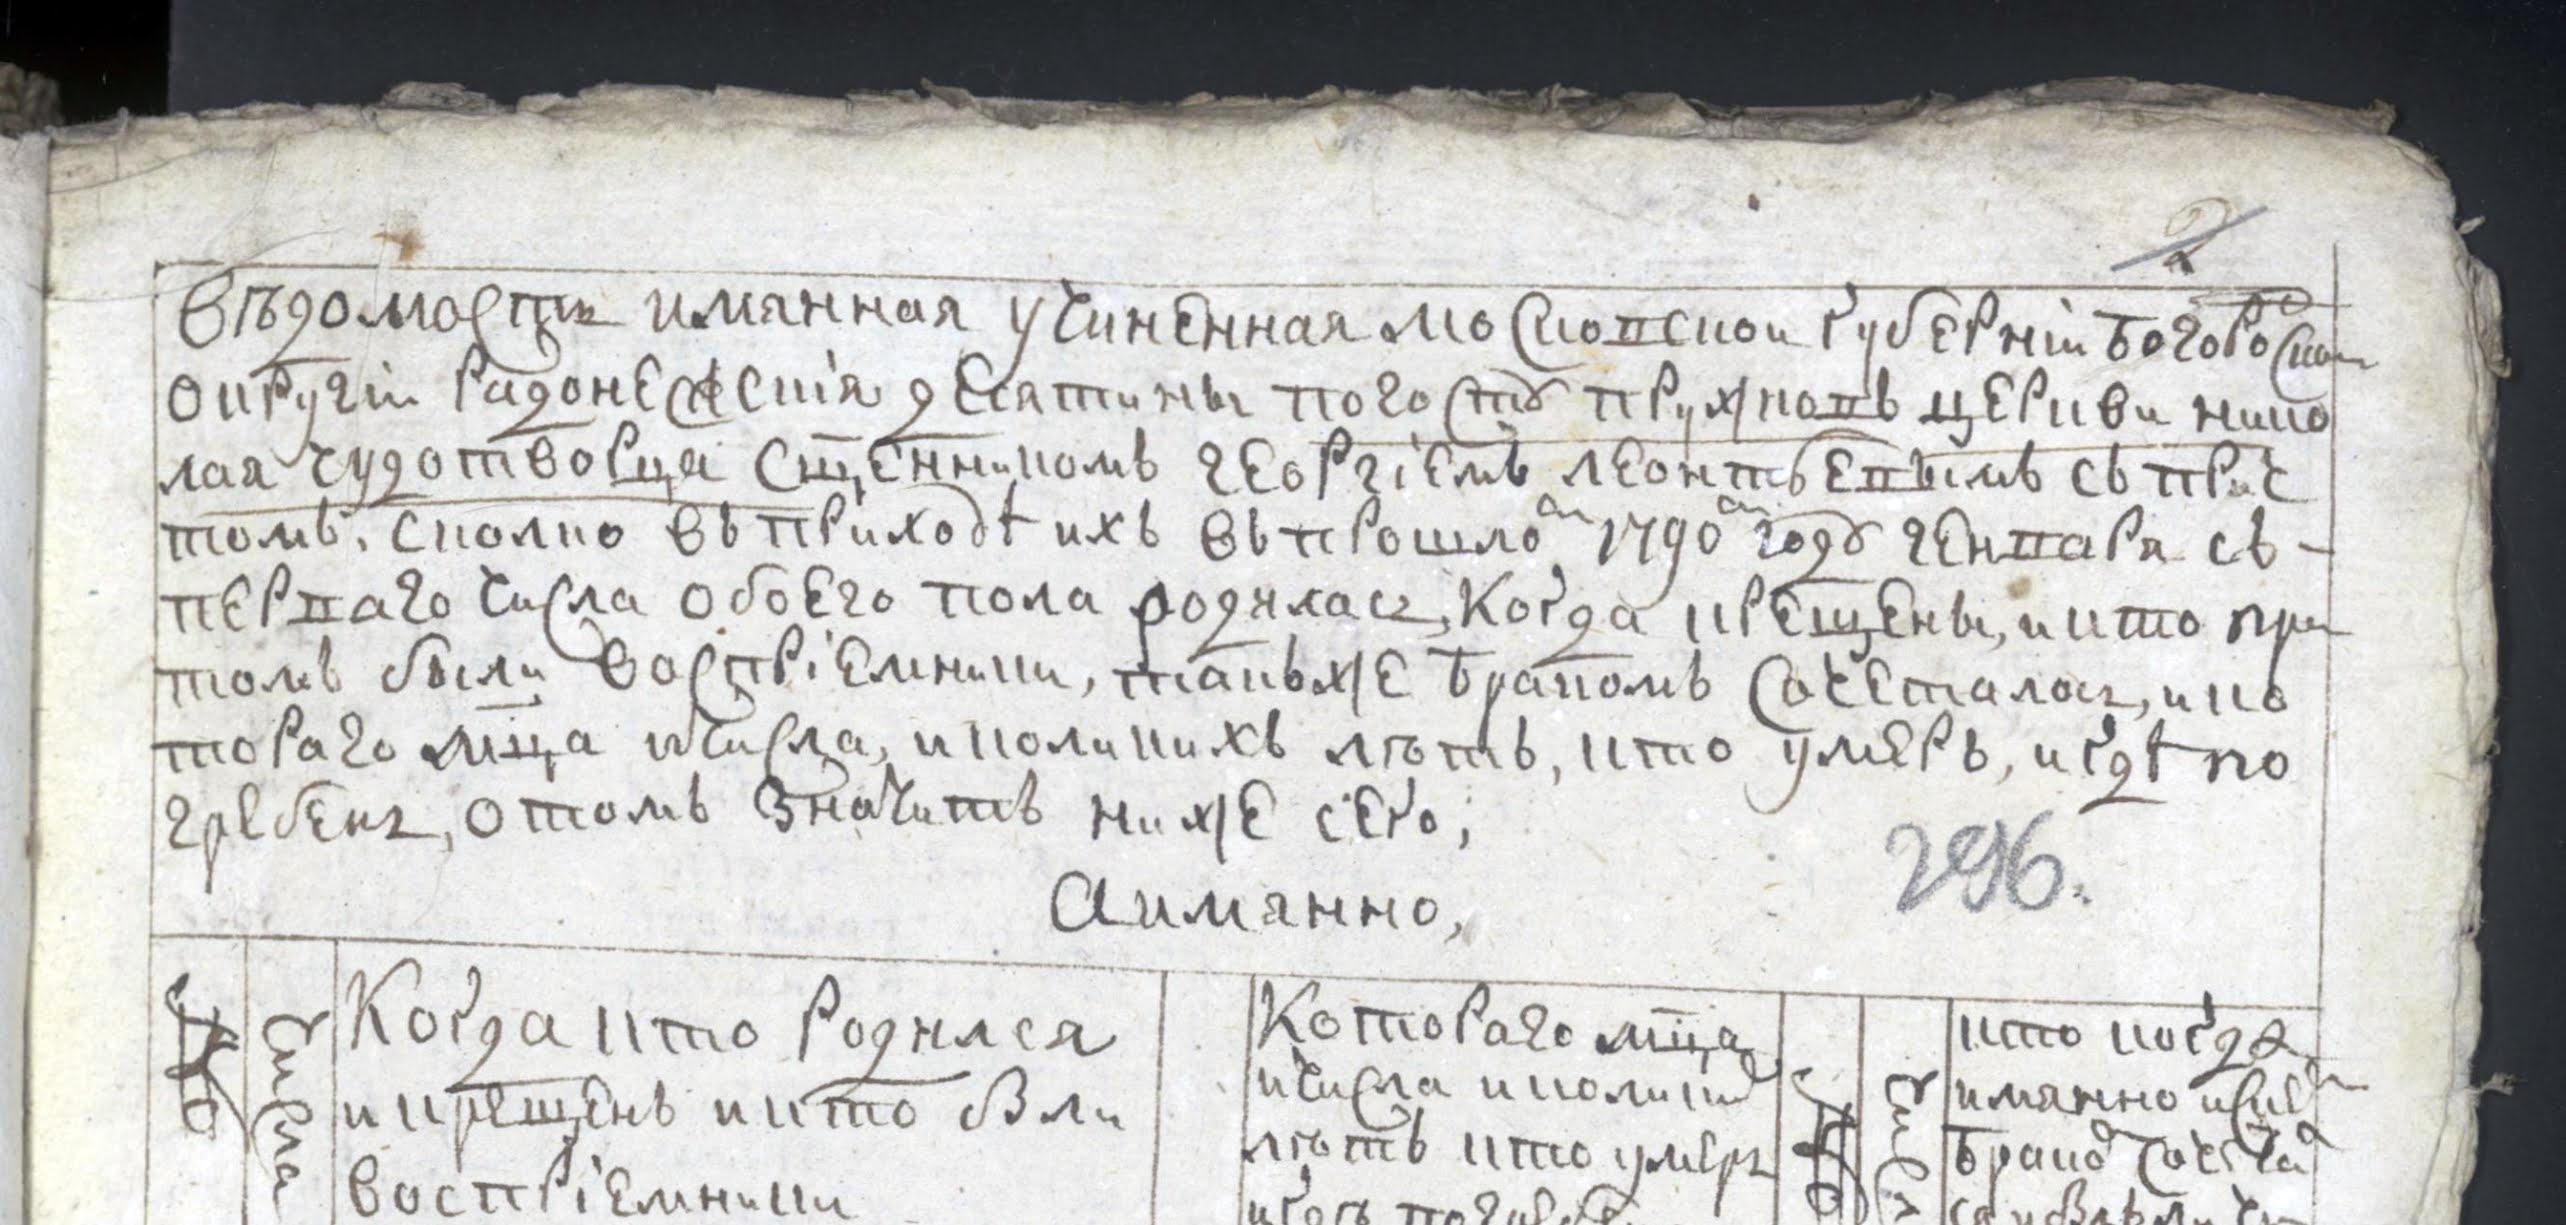 2
Вѣдомость имянная учиненная московской губерніи Богороской
округи радонежскія десятины погоста пружковъ церкви нико
лая чудотворца сщенникомъ георгіемъ леонтьевымъ съ прич
томъ. сколко въ приходѣ ихъ въ прошломъ 1790м году генваря съ
перваго числа обоего пола родилась, когда крещены, и кто при
томъ были воспріемники, такъже бракомъ сочеталось, и ко
тораго мца и числа, и коликихъ лѣтъ, кто умеръ, и гдѣ по
гребенъ, о томъ значитъ ниже сего;
А имянно,
296.
число
Когда кто родился
и крещенъ и кто были
воспріемники
Котораго мца
и числа и коликих
лѣтъ кто умеръ
числ
кто когда
имянно и с кем
браком сочета